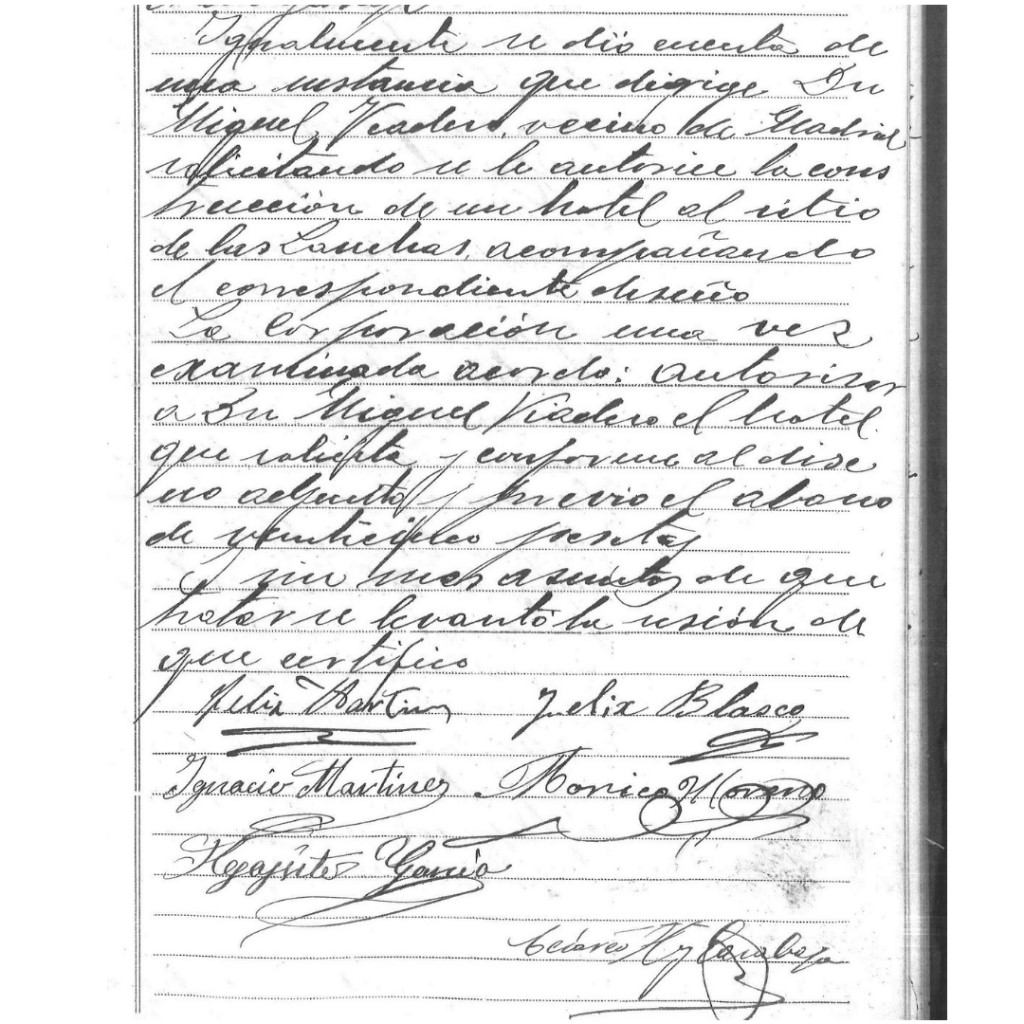 Igualmente se dió cuenta de
una instancia que dirige Dn
Miguel Viadero, vecino de Madrid
solicitando se le autorice la cons
trucción de un hotel al sitio
de las Lanchas, acompañando
el correspondiente diseño
La Corporación una vez
examinada acordo: autorizar
a Dn Miguel Viadero el hotel
que solicita y conforme al dise
no adjunto y previo el abono
de veinticinco pesetas
Y sin mas asuntos de que
tratar se levantó la sesión de
que certifico
Felix Martin Felix Blasco
Ignacio Martinez Monico Moreno
Agapito García